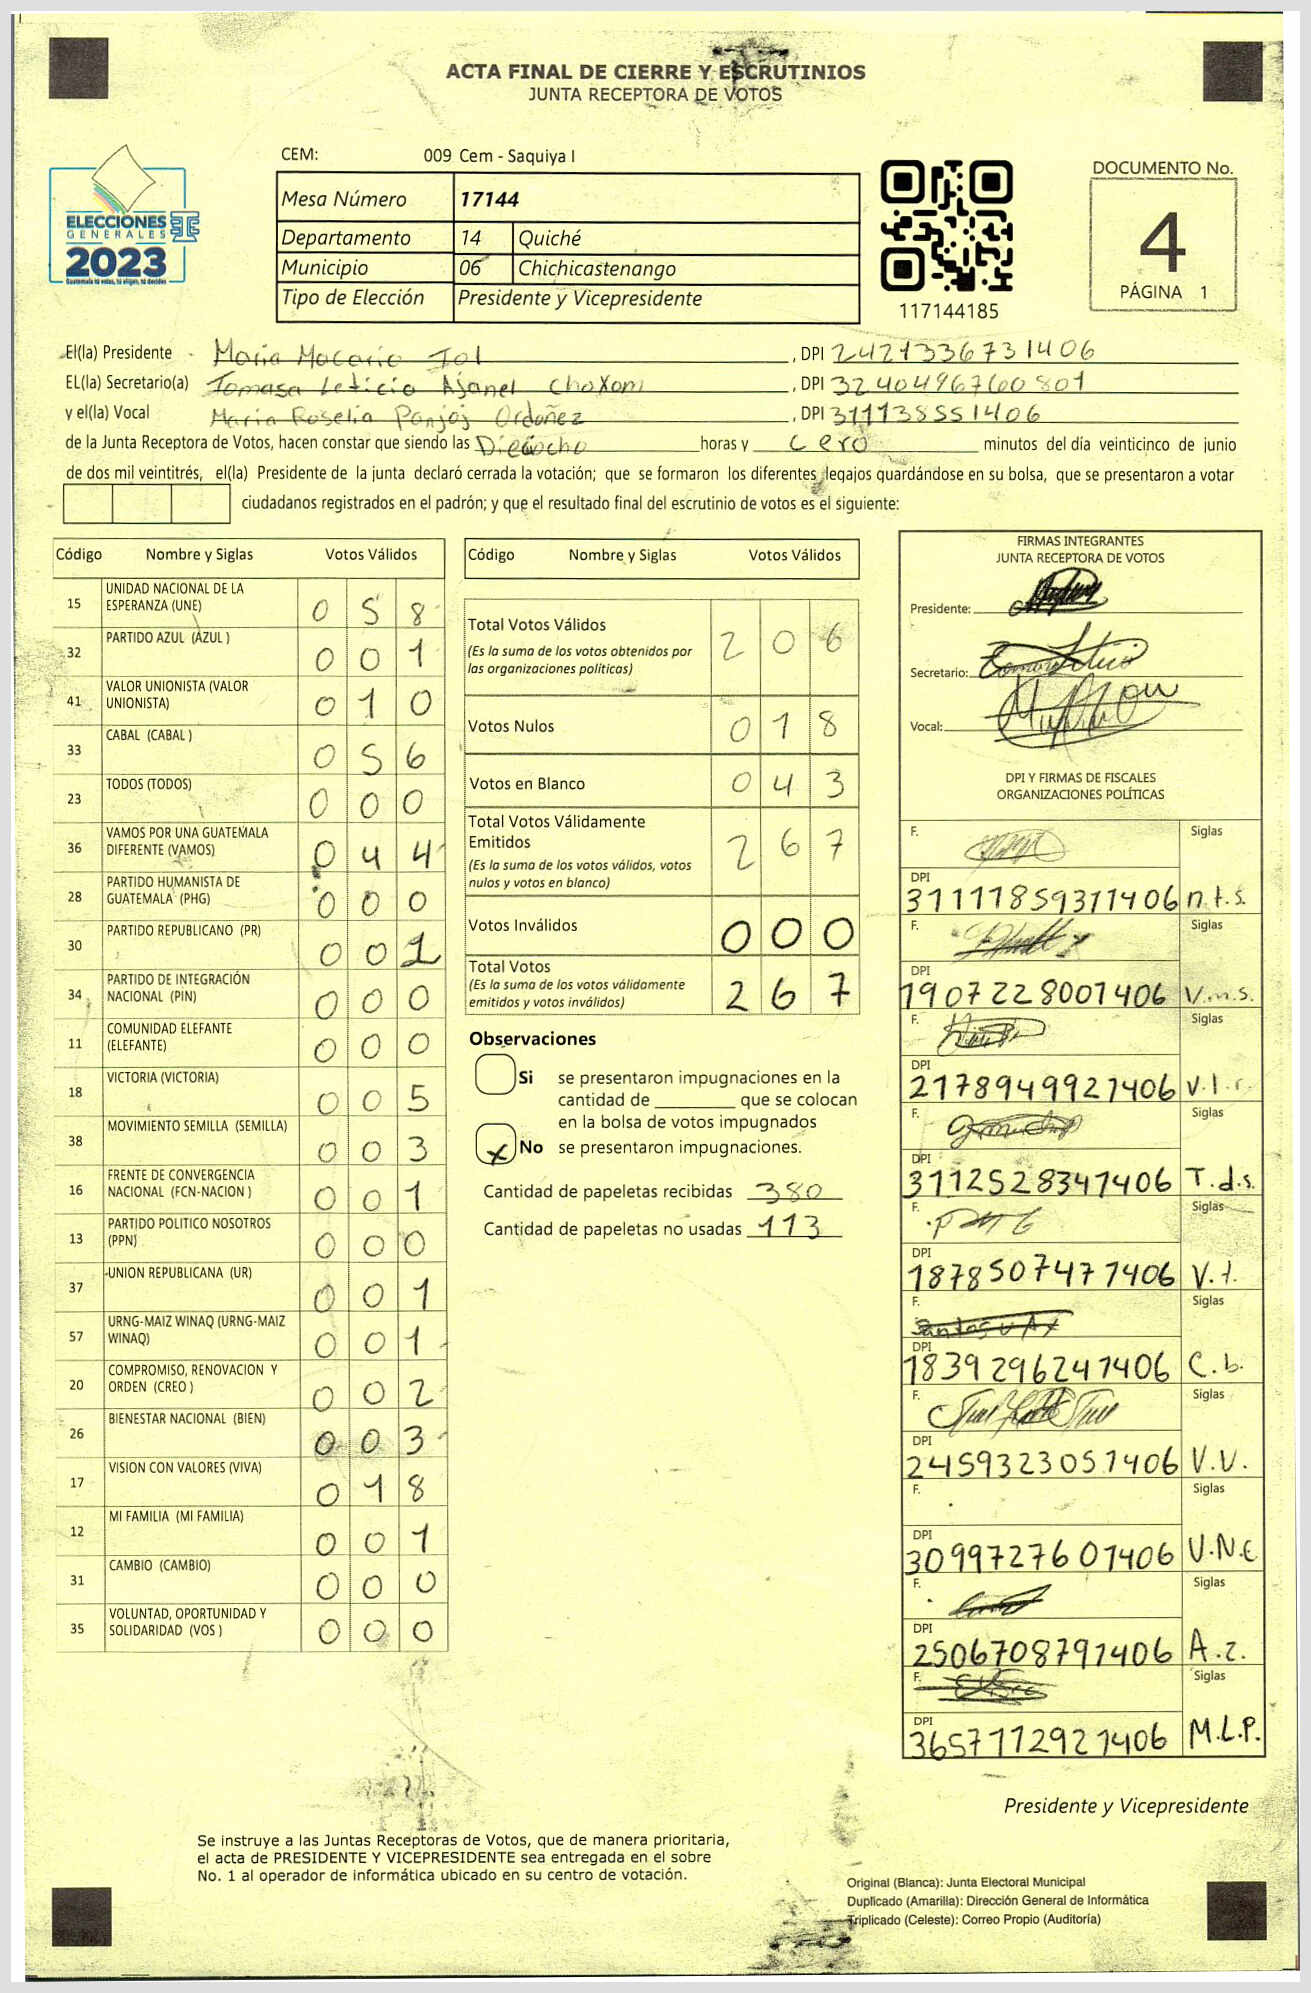 ACTA FINAL DE CIERRE Y ESCRUTINIOS
JUNTA RECEPTORA DE VOTOS
CEM: 009 Cem - Saquiya I
ELECCIONES
GENERALES
2023
Guatemala tú votas, tú eliges, tú decides
Mesa Número 17144
Departamento 14 Quiché
Municipio 06 Chichicastenango
Tipo de Elección Presidente y Vicepresidente
117144185
DOCUMENTO No.
4
PÁGINA 1
El(la) Presidente Maria Macario Tol, DPI 2421336731406
EL(la) Secretario(a) Tomasa Leticia Ajanel Choxom, DPI 3240496760801
y el(la) Vocal Maria Roselia Panjoj Ordoñez, DPI 311138551406
de la Junta Receptora de Votos, hacen constar que siendo las Dieciocho horas y cero minutos del día veinticinco de junio
de dos mil veintitrés, el(la) Presidente de la junta declaró cerrada la votación; que se formaron los diferentes legajos guardándose en su bolsa, que se presentaron a votar
ciudadanos registrados en el padrón; y que el resultado final del escrutinio de votos es el siguiente:
Código Nombre y Siglas Votos Válidos
15 UNIDAD NACIONAL DE LA ESPERANZA (UNE) 0 5 8
32 PARTIDO AZUL (AZUL ) 0 0 1
41 VALOR UNIONISTA (VALOR UNIONISTA) 0 1 0
33 CABAL (CABAL ) 0 5 6
23 TODOS (TODOS) 0 0 0
36 VAMOS POR UNA GUATEMALA DIFERENTE (VAMOS) 0 4 4
28 PARTIDO HUMANISTA DE GUATEMALA (PHG) 0 0 0
30 PARTIDO REPUBLICANO (PR) 0 0 2
34 PARTIDO DE INTEGRACIÓN NACIONAL (PIN) 0 0 0
11 COMUNIDAD ELEFANTE (ELEFANTE) 0 0 0
18 VICTORIA (VICTORIA) 0 0 5
38 MOVIMIENTO SEMILLA (SEMILLA) 0 0 3
16 FRENTE DE CONVERGENCIA NACIONAL (FCN-NACION ) 0 0 1
13 PARTIDO POLITICO NOSOTROS (PPN) 0 0 0
37 UNION REPUBLICANA (UR) 0 0 1
57 URNG-MAIZ WINAQ (URNG-MAIZ WINAQ) 0 0 1
20 COMPROMISO, RENOVACION Y ORDEN (CREO ) 0 0 2
26 BIENESTAR NACIONAL (BIEN) 0 0 3
17 VISION CON VALORES (VIVA) 0 1 8
12 MI FAMILIA (MI FAMILIA) 0 0 1
31 CAMBIO (CAMBIO) 0 0 0
35 VOLUNTAD, OPORTUNIDAD Y SOLIDARIDAD (VOS ) 0 0 0
Código Nombre y Siglas Votos Válidos
Total Votos Válidos 2 0 6
(Es la suma de los votos obtenidos por
las organizaciones políticas)
Votos Nulos 0 1 8
Votos en Blanco 0 4 3
Total Votos Válidamente
Emitidos 2 6 7
(Es la suma de los votos válidos, votos
nulos y votos en blanco)
Votos Inválidos 0 0 0
Total Votos 2 6 7
(Es la suma de los votos válidamente
emitidos y votos inválidos)
Observaciones
Si se presentaron impugnaciones en la
cantidad de ________ que se colocan
en la bolsa de votos impugnados
x No se presentaron impugnaciones.
Cantidad de papeletas recibidas 380
Cantidad de papeletas no usadas 113
FIRMAS INTEGRANTES
JUNTA RECEPTORA DE VOTOS
Presidente:
Secretario:
Vocal:
DPI Y FIRMAS DE FISCALES
ORGANIZACIONES POLÍTICAS
F. Siglas
DPI
3111185931406 n.t.s.
F. Siglas
DPI
1907228001406 V.m.s.
F. Siglas
DPI
2178949921406 V.l.r.
F. Siglas
DPI
3112528341406 T.d.s.
F. Siglas
DPI
1878507471406 V.t.
F. Siglas
DPI
1839296241406 C.b.
F. Siglas
DPI
2459323051406 V.V.
F. Siglas
DPI
3099727601406 U.N.E
F. Siglas
DPI
2506708791406 A.z.
F. Siglas
DPI
3657112921406 M.L.P.
Presidente y Vicepresidente
Se instruye a las Juntas Receptoras de Votos, que de manera prioritaria,
el acta de PRESIDENTE Y VICEPRESIDENTE sea entregada en el sobre
No. 1 al operador de informática ubicado en su centro de votación.
Original (Blanca): Junta Electoral Municipal
Duplicado (Amarilla): Dirección General de Informática
Triplicado (Celeste): Correo Propio (Auditoría)